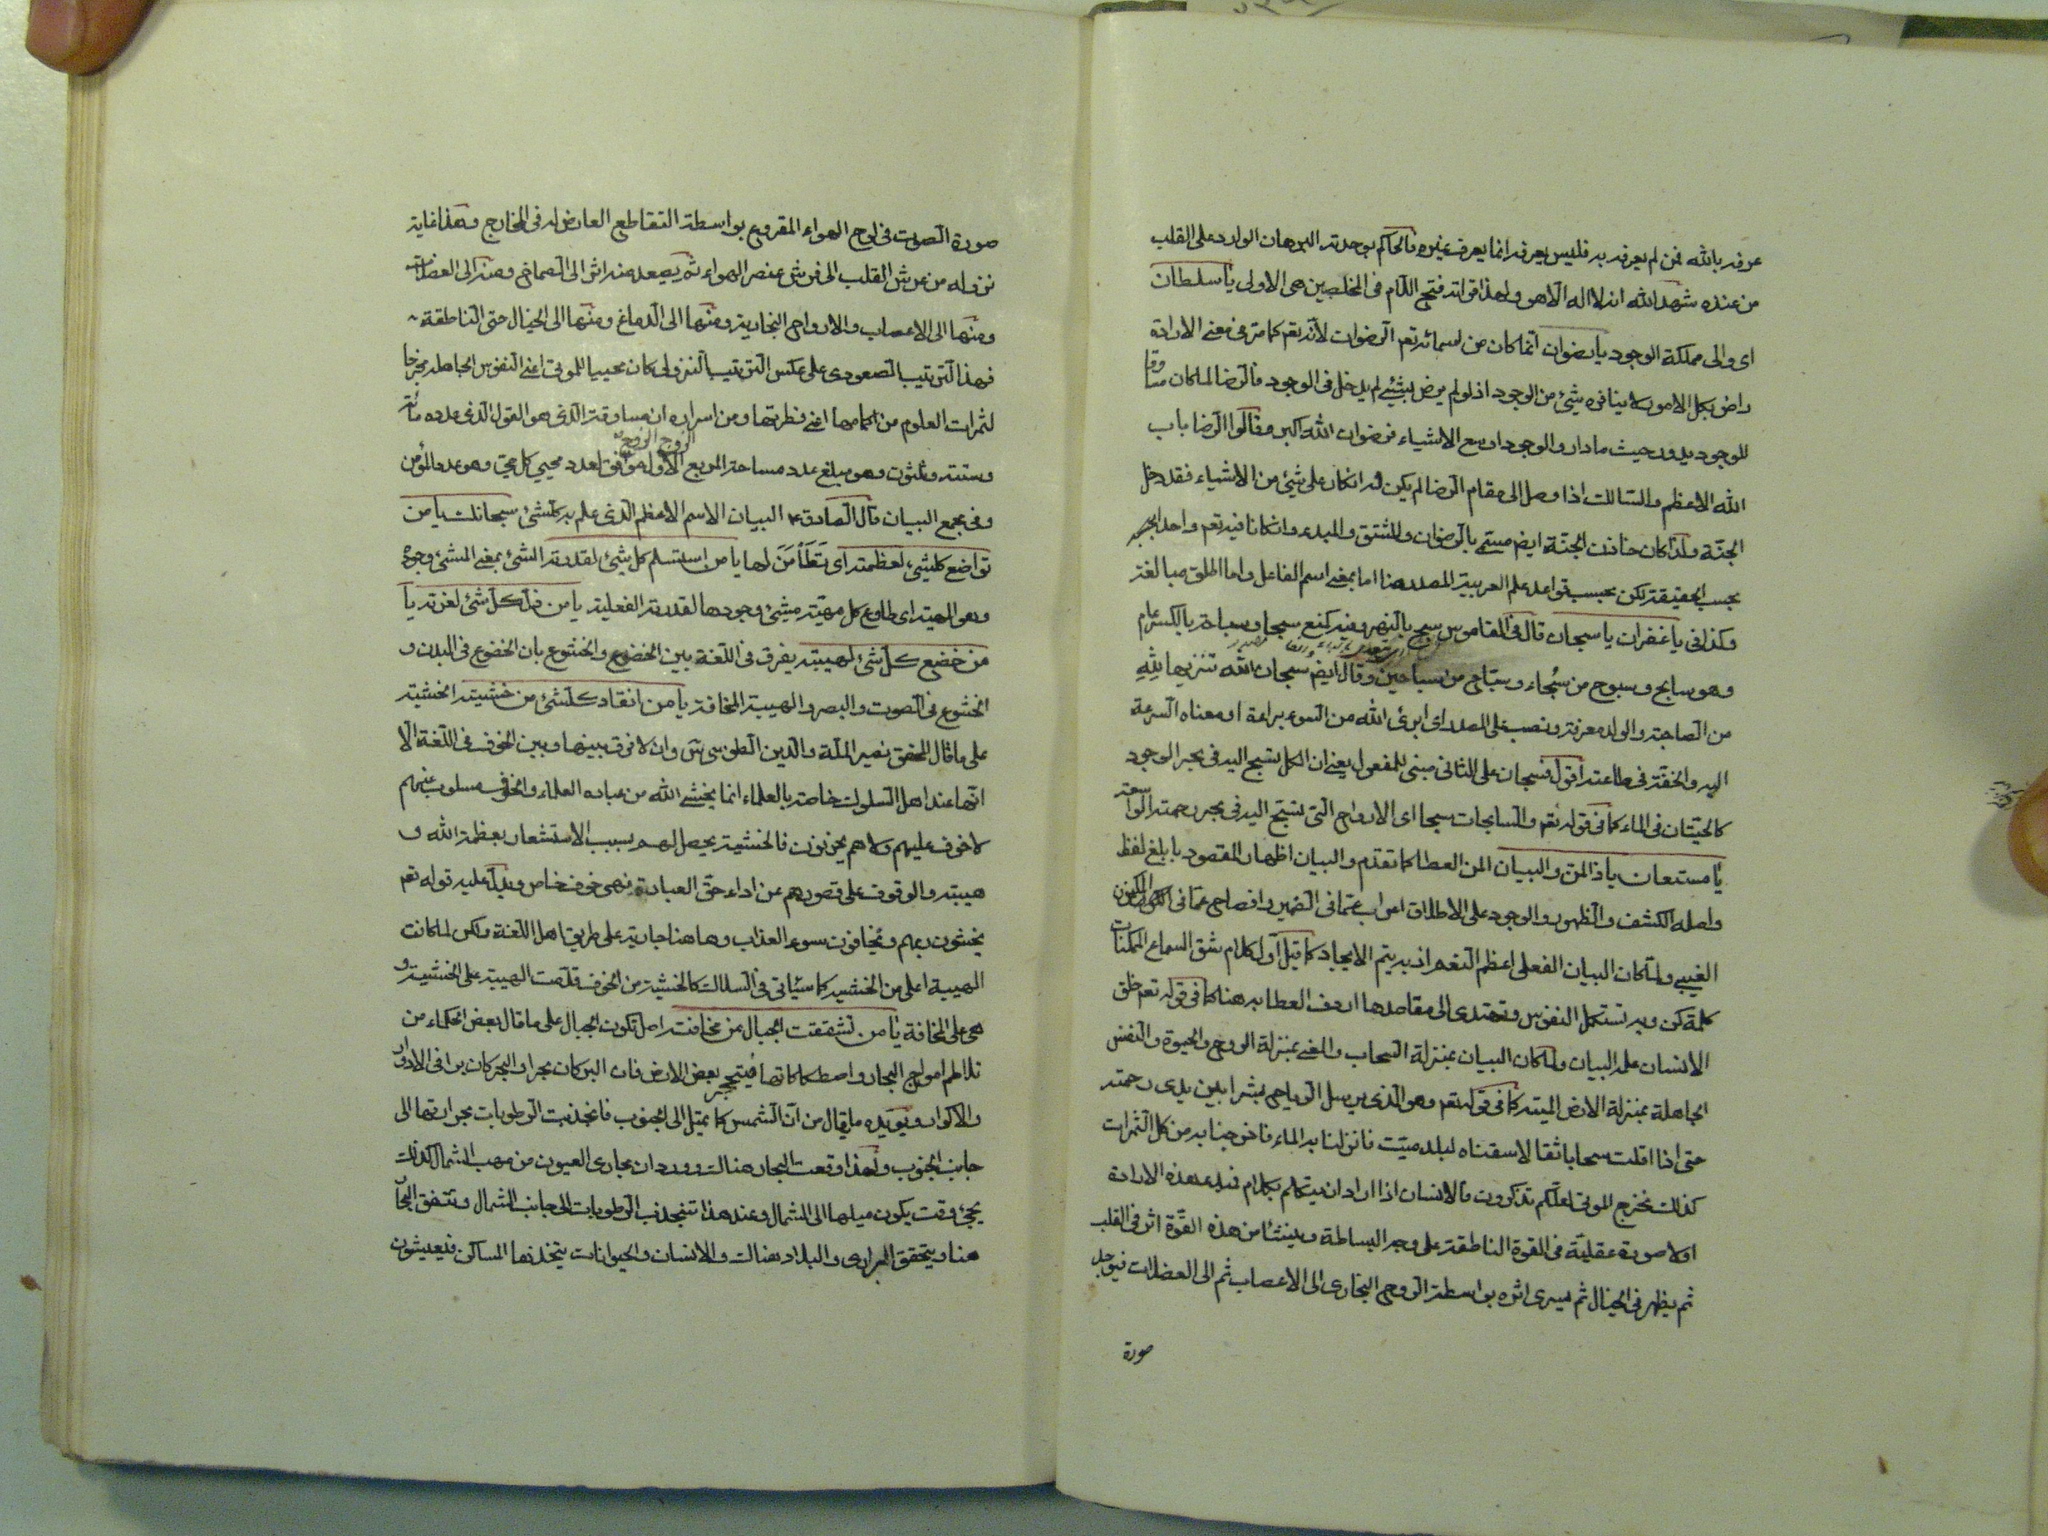 عرفه بالله فمن لم يعرفه به فليس يعرفه انما يعرف غيره فالحاكم بوحدته البرهان الوارد على القلب
من عنده شهد الله انه لا اله الا هو ولهذا قرائة فتح اللام في المخلصين هي الاولى يا سلطان
اى والى مملكة الوجود يا رضوان انما كان من اسمائه تعم الرضوان لانه تعم كما مر في معنى الارادة
راض بكل الامور لا ينافره شيئ من الوجود اذ لو لم يرض بشيئ لم يدخل في الوجود فالرضا لما كان مساوقا
للوجود يدور حيث ما دار والوجود وسع الاشياء فرضوان الله اكبر وقالوا الرضا باب
الله الاعظم والسالك اذا وصل الى مقام الرضا لم يكن له انكار على شيئ من الاشياء فقد دخل
الجنة ولذا كان خازن الجنة ايضا مسمى بالرضوان والمشتق والمبدء وان كانا فيه تعم واحدا
بحسب الحقيقة لكن بحسب قواعد علم العربية المصدر هنا اما بمعنى اسم الفاعل واما اطلق مبالغة
وكذا في يا غفران يا سبحان قال في القاموس سبح بالنهر وفيه كمنع سبحا وسباحة بالكسر عام
وهو سابح وسبوح من سبحاء وسباح من سباحين وقال ايضا سبحان الله تنزيها لله
من الصاحبة والولد معرفة ونصب على المصدر اى ابرئ الله من السوء براءة او معناه السرعة
اليه والخفة في طاعته اقول فسبحان على الثانى مبنى للمفعول يعنى ان الكل يسبح اليه في بحر الوجود
كالحيتان في الماء كما في قوله تعم والسابحات سبحا اى الارواح التى تسبح اليه في بحر رحمته الواسعة
يا مستعان يا ذا المن والبيان المن العطا كما تقدم والبيان اظهار المقصود بابلغ لفظ
واصله الكشف والظهور والوجود على الاطلاق اعراب عما في الضمير وافصاح عما في المكنون
الغيبى ولما كان البيان الفعلى اعظم النعم اذ به يتم الايجاد كما قيل اول كلام شق اسماع الممكنات
كلمة كن وبه تستكمل النفوس وتهتدى الى مقاصدها اردف العطا به هنا كما في قوله تعم خلق
الانسان علمه البيان ولما كان البيان بمنزلة السحاب والمعنى بمنزلة الروح والحيوة والنفس
الجاهلة بمنزلة الارض الميتة كما في قوله تعم وهو الذى يرسل الرياح بشرا بين يدى رحمته
حتى اذا اقلت سحابا ثقالا سقناه لبلد ميت فانزلنا به الماء فاخرجنا به من كل الثمرات
كذلك نخرج الموتى لعلكم تذكرون فالانسان اذا اراد ان يتكلم بكلام فمبدء هذه الارادة
اولا صورة عقلية في القوة الناطقة على وجه البساطة وينشا من هذه القوة اثر في القلب
ثم يظهر في الخيال ثم يسرى اثره بواسطة الروح البخارى الى الاعصاب ثم الى العضلات فيوجد
صورة
صورة الصوت في لوح الهواء المقروع بواسطة التقاطع العارض له في المخارج وهذا غاية
نزوله من عرش القلب الى فرش عنصر الهواء ثم يصعد منه اثر الى الصماخ ومنه الى العضلات
ومنها الى الاعصاب والارواح البخارية ومنها الى الدماغ ومنها الى الخيال حتى الناطقة
فهذا الترتيب الصعودى على عكس الترتيب النزولى كان محييا للموتى اعنى النفوس الجاهلة مخرجا
لثمرات العلوم من اكمامها اعنى فطرتها ومن اسراره ان مساوقة الذى هو القول الذى عدده مائة
وستة وثلثون وهو مبلغ عدد مساحة المربع الاول موافق لعدد محيي كل حى وهو عدد المؤمن
وفي مجمع البيان قال الصادق ع البيان الاسم الاعظم الذى علم به كلشئ سبحانك يا من
تواضع كلشئ لعظمته اى تطأمن لها يا من استسلم كل شيئ لقدرته الشئ بمعنى المشئ وجوده
وهو المهية اى طاوع كل مهية مشئ وجودها لقدرته الفعلية يا من ذل كل شئ لعزته يا
من خضع كل شئ لهيبته يفرق في اللغة بين الخضوع والخشوع بان الخضوع في البدن و
الخشوع في الصوت والبصر والهيبة المخافة يا من انقاد كلشئ من خشيته الخشية
على ما قال المحقق نصير الملة والدين الطوسى س وان لا فرق بينها وبين الخوف في اللغة الا
انها عند اهل السلوك خاصة بالعلماء انما يخشى الله من عباده العلماء والخوف مسلوب عنهم
لا خوف عليهم ولا هم يحزنون فالخشية يحصل لهم بسبب الاستشعار بعظمة الله و
هيبته والوقوف على قصورهم عن اداء حق العبادة فهى خوف خاص ويدل عليه قوله تعم
يخشون ربهم ويخافون سوء العذاب وها هنا جارية على طريق اهل اللغة ولكن لما كانت
الهيبة اعلى من الخشية كما سيأتى في السلاك كالخشية من الخوف قدمت الهيبة على الخشية و
هى على المخافة يا من تشققت الجبال من مخافته اصل تكون الجبال على ما قال بعض الحكماء من
تلاطم امواج البحار واصطكاكاتها فيتحجر بعض الارض فان البر كان بحرا والبحر كان برا في الادوار
والاكوار ويؤيده ما يقال من ان الشمس كما يميل الى الجنوب فانجذبت الرطوبات بحرارتها الى
جانب الجنوب ولهذا وقعت البحار هناك ووردان مجارى العيون من مهب الشمال كذلك
يجئ وقت يكون ميلها الى الشمال وعند هذا تنجذب الرطوبات الى جانب الشمال وتتفق البحار
هنا ويتحقق البرارى والبلاد هناك والانسان والحيوانات يتخذنها المساكن فيعيشون